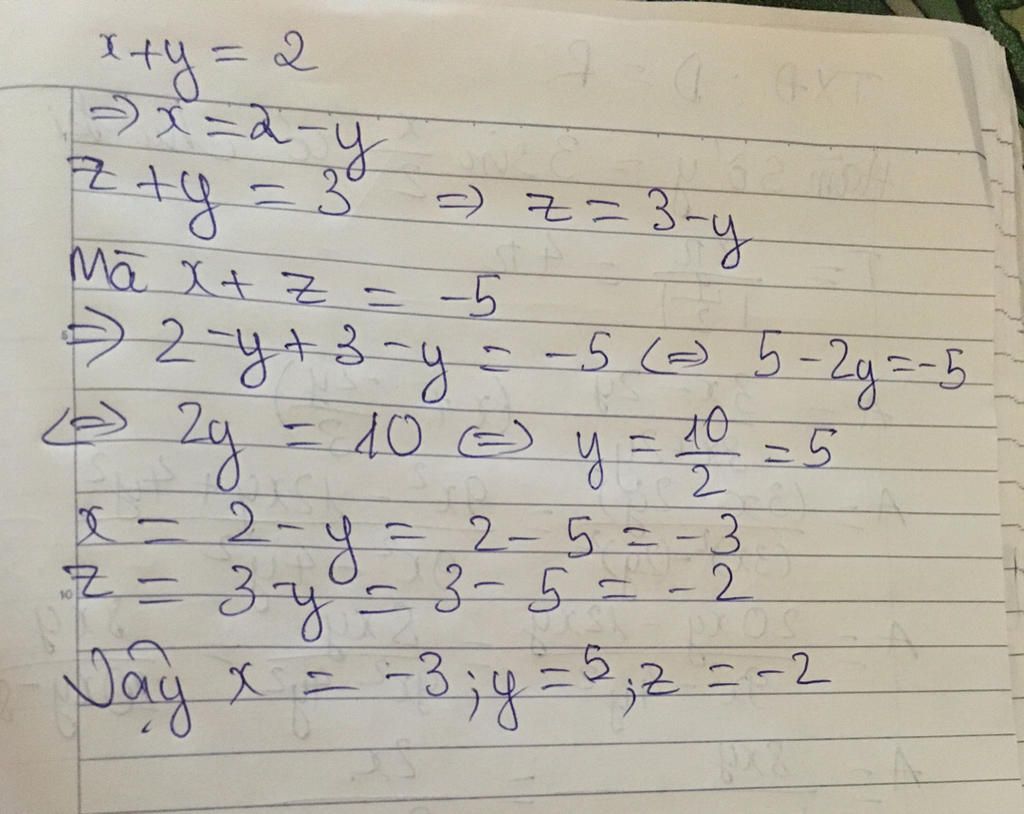 x+y = 2
⇒ x = 2 - y
z + y = 3 ⇒ z = 3 - y
Mà x + z = -5
⇒ 2 - y + 3 - y = -5 ⇔ 5 - 2y = -5
⇔ 2y = 10 ⇔ y = 10/2 = 5
x = 2 - y = 2 - 5 = -3
z = 3 - y = 3 - 5 = -2
Vậy x = -3 ; y = 5 ; z = -2